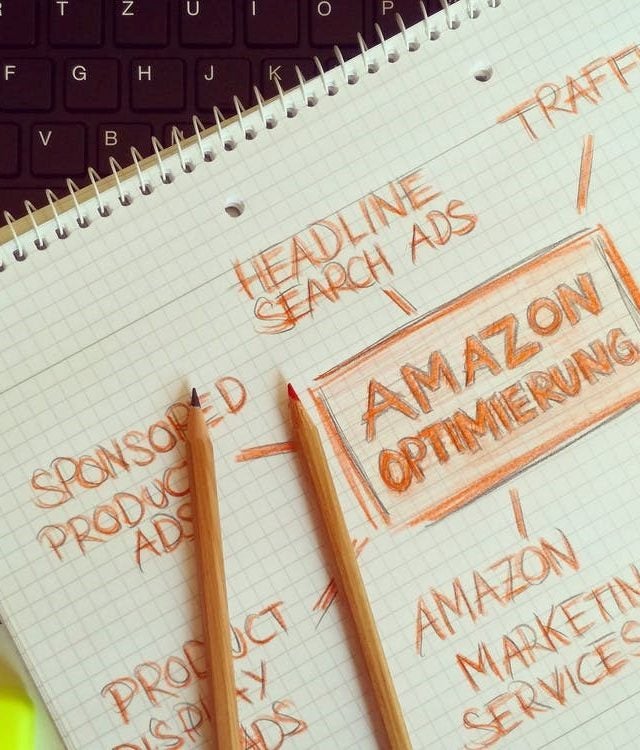 T Z U I O P
F G H J K
V B
TRAFFI
HEADLINE
SEARCH ADS
AMAZON
OPTIMIERUNG
SPONSORED
PRODUCT
ADS
AMAZON
MARKETIN
SERVICES
PRODUCT
DISPLAY
ADS